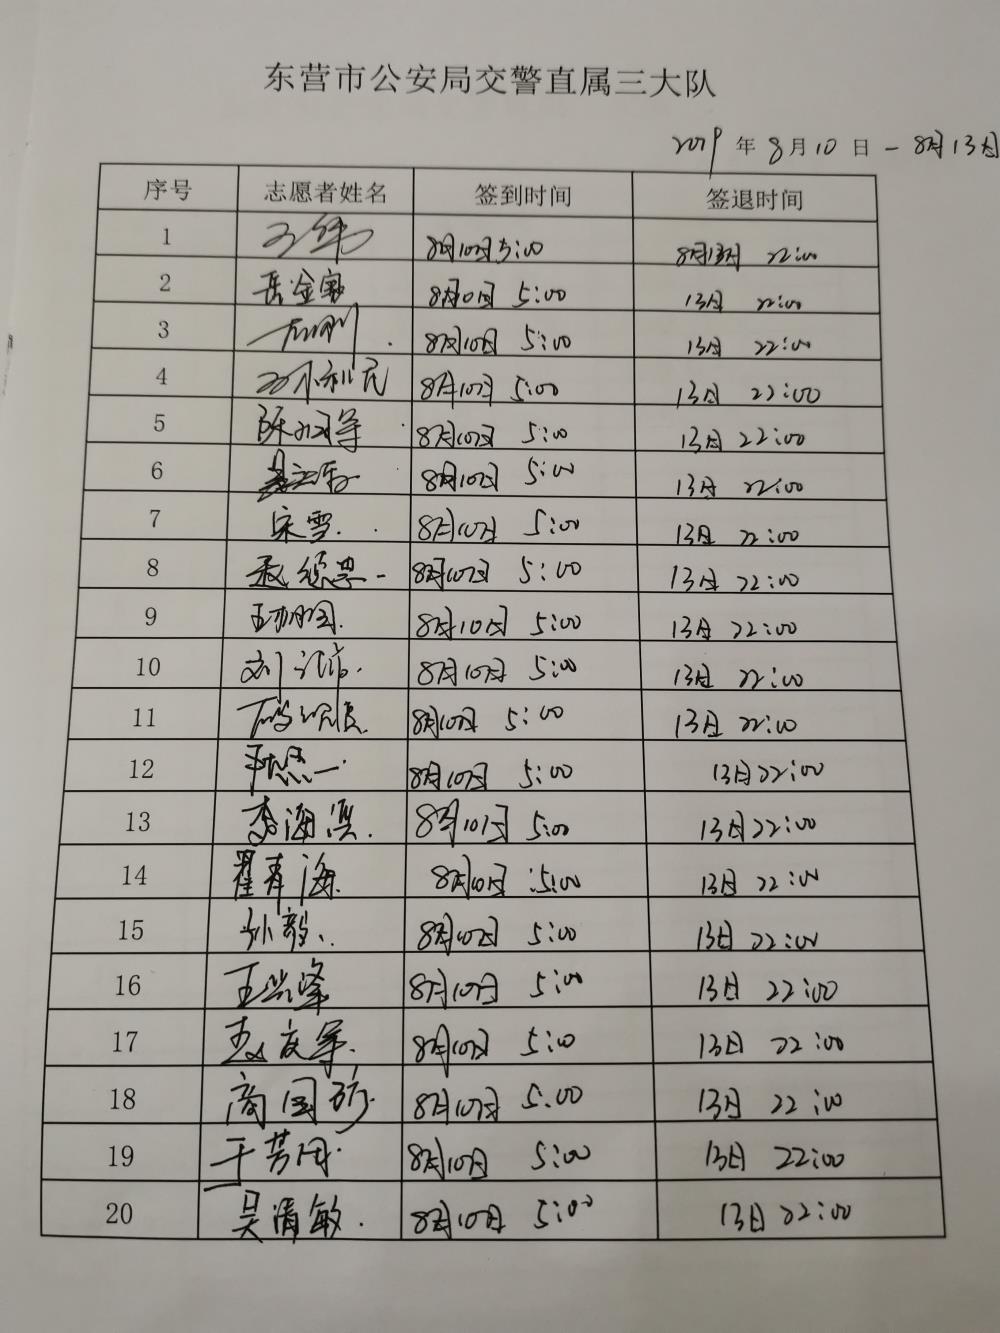 东营市公安局交警直属三大队
2019年8月10日-8月13日
序号 志愿者姓名 签到时间 签退时间
1 8月10日5:00 8月13日 22:00
2 岳金家 8月10日 5:00 13日 22:00
3 8月10日 5:00 13日 22:00
4 8月10日 5:00 13日 22:00
5 8月10日 5:00 13日 22:00
6 8月10日 5:00 13日 22:00
7 宋雪. 8月10日 5:00 13日 22:00
8 8月10日 5:00 13日 22:00
9 8月10日 5:00 13日 22:00
10 8月10日 5:00 13日 22:00
11 8月10日 5:00 13日 22:00
12 8月10日 5:00 13日 22:00
13 李海滨. 8月10日 5:00 13日 22:00
14 翟青海. 8月10日 5:00 13日 22:00
15 孙毅. 8月10日 5:00 13日 22:00
16 王兴峰 8月10日 5:00 13日 22:00
17 赵庆军. 8月10日 5:00 13日 22:00
18 商国 8月10日 5:00 13日 22:00
19 于芳 8月10日 5:00 13日 22:00
20 吴清敏. 8月10日 5:00 13日 22:00